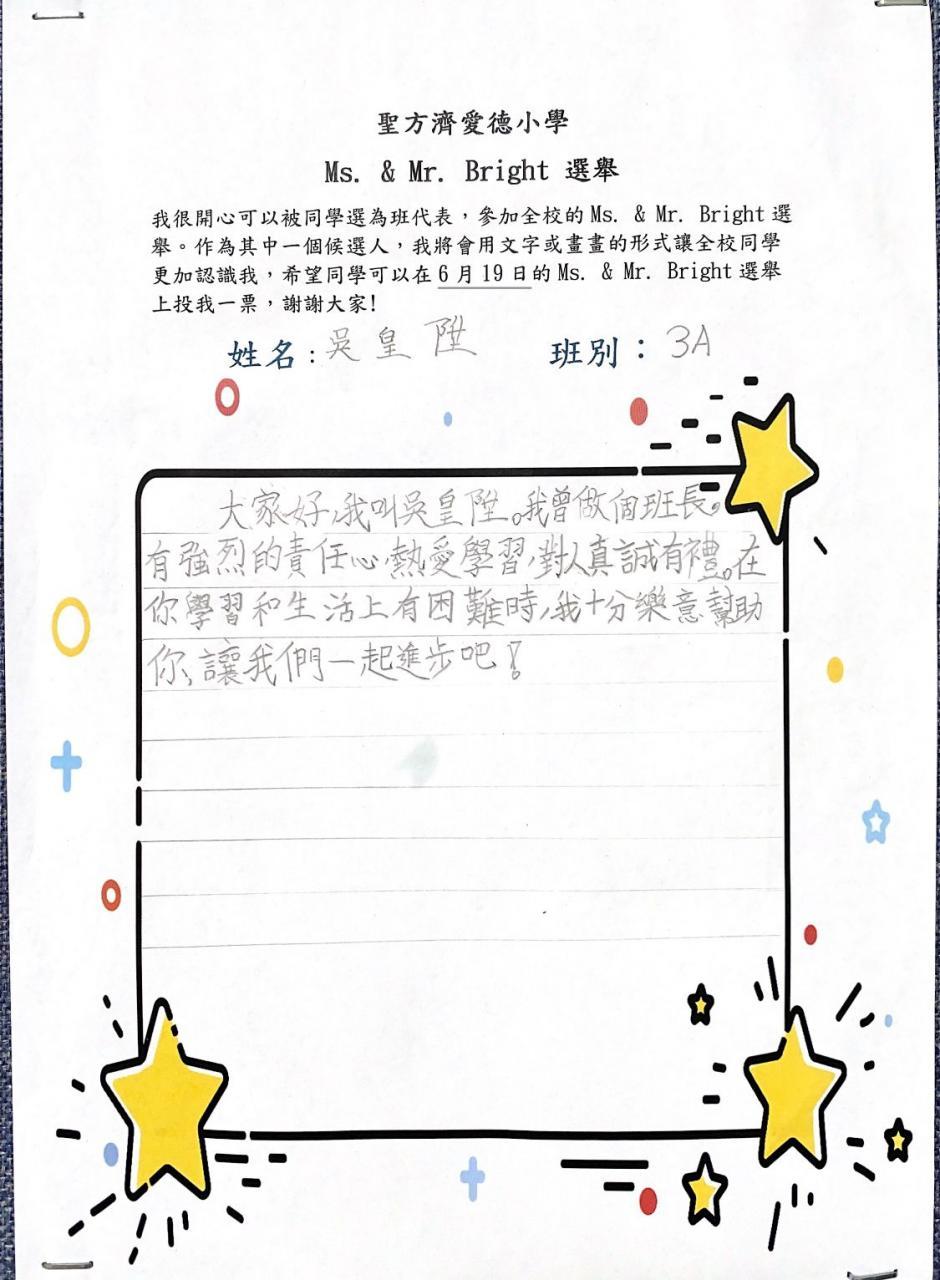 聖方濟愛德小學
Ms. & Mr. Bright 選舉
我很開心可以被同學選為班代表，參加全校的 Ms. & Mr. Bright 選
舉。作為其中一個候選人，我將會用文字或畫畫的形式讓全校同學
更加認識我，希望同學可以在 6 月 19 日的 Ms. & Mr. Bright 選舉
上投我一票，謝謝大家!
姓名：吳皇陞 班別：3A
大家好，我叫吳皇陞。我曾做個班長。
有強烈的責任心，熱愛學習，對人真誠有禮。在
你學習和生活上有困難時，我十分樂意幫助
你，讓我們一起進步吧！